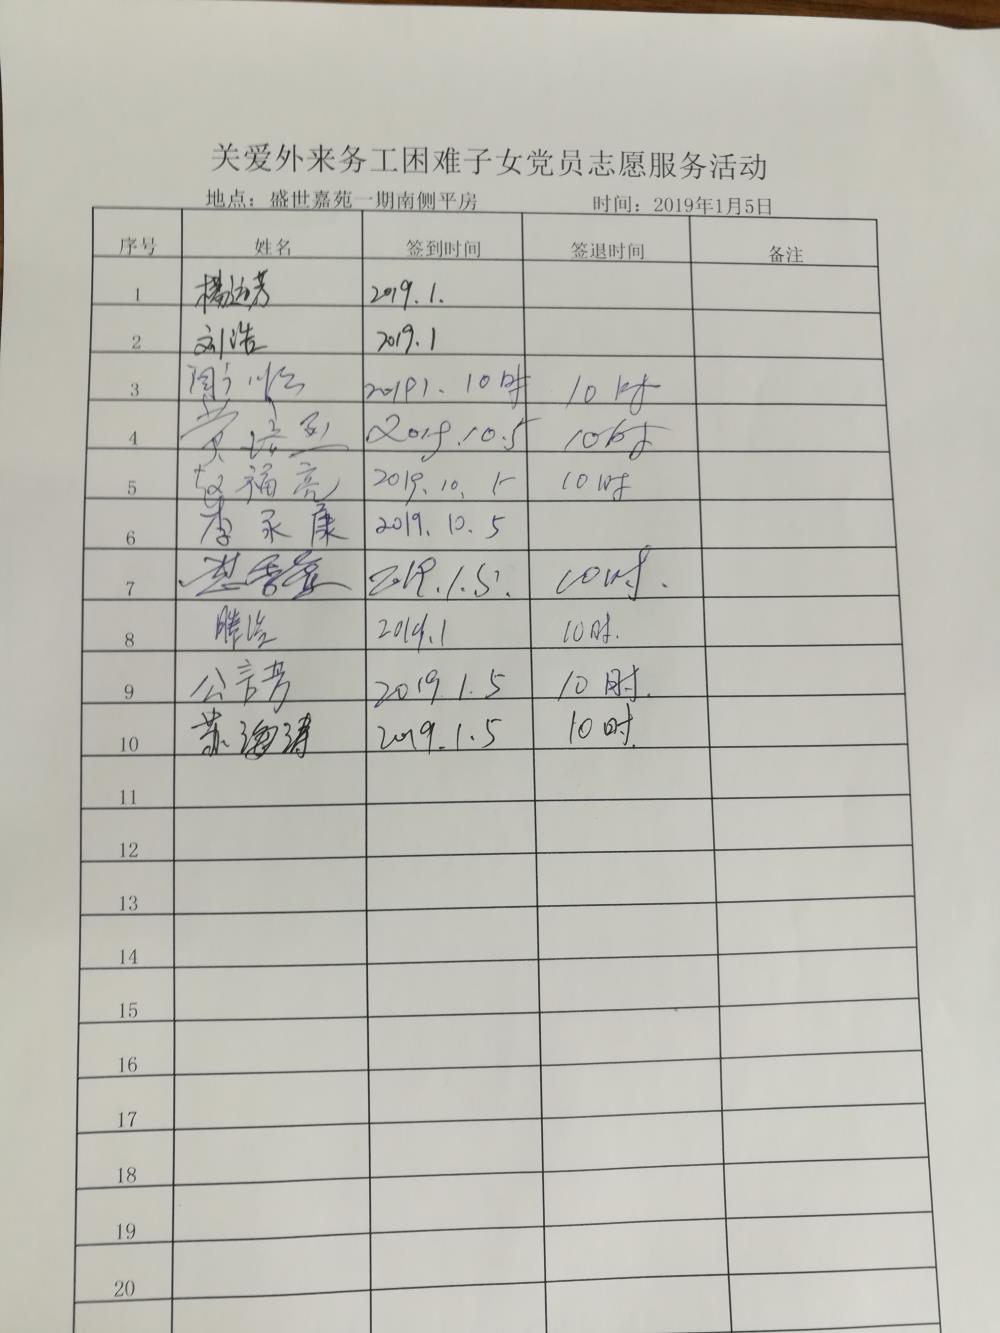 关爱外来务工困难子女党员志愿服务活动
地点：盛世嘉苑一期南侧平房 时间：2019年1月5日
序号 姓名 签到时间 签退时间 备注
1 2019.1.
2 刘浩 2019.1
3 20191.10时 10时
4 2019.10.5 10时
5 赵福亮 2019.10.5 10时
6 李永康 2019.10.5
7 2019.1.5. 10时.
8 2019.1 10时.
9 公言芳 2019.1.5 10时.
10 苏海涛 2019.1.5 10时.
11
12
13
14
15
16
17
18
19
20